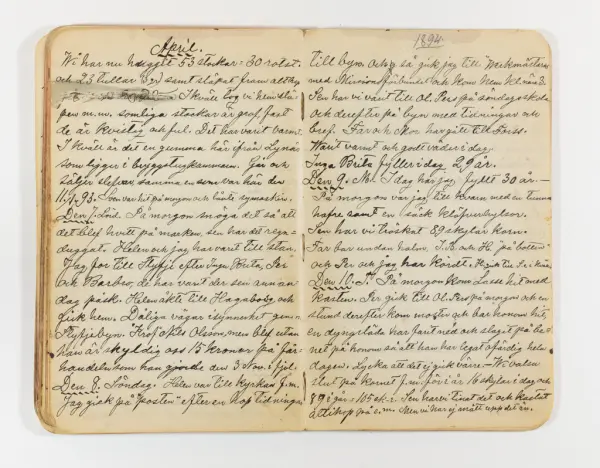 April.
Wi har nu huggit 53 stockar = 30 rotst.
och 23 tullar (er) samt släpat fram allt
I kväll tog vi hem
pen m.m. somliga stockar är grof, fast
de är kvistig och ful. Det har varit varmt.
I kväll är det en gumma här ifrån Lynäs
som ligger i bryggstugkammen. Går och
säljer samma en som var här den
11/4 93. Sven var hit på morgon och lånte symaskin.
Den 7. Lörd. På morgon snöga det så att
det blef hvitt på marken, sen har det regna
duggat. Helen och jag har varit till stan.
Jag for till Flytjé efter Inga Brita, Per
och Barbro, de har varit der sen annan
dag påsk. Helen åkte till Hagaborg och
gick hem. Dåliga vägar isynnerhet genom
Flytjebyn. Krof Nils Olsson, men blef utan
han är skyldig oss 15 kronor på får-
handeln som han gjorde den 3 Nov. i fjol.
Den 8. Söndag. Helen var till Kyrkan f.m.
Jag gick på "posten" efter en hop tidningar
1894
till byn. Och så gick jag till Werkmästarn
med Missionsförbundet och kom hem kl. nära 8.
Sen har vi varit till Ol. Pers på söndagsskola
och derefter på byn med tidningar och
bref. Far och Mor har gått till Fors.
Warit varmt och godt väder i dag.
Inga Brita fyller i dag 29 år.
Den 9. M. I dag har jag fyllt 30 år.
På morgon var jag till kvarn med en tunna
hafre samt en säck klöfverhylsor.
Sen har vi tröskat 89 skylar korn.
Far bar undan halm, I.B. och H. "på botten"
och Per och jag har kördt.
Den 10. T. På morgon kom Lasse hit med
kärran. Per gick till Ol. Pers på morgon och en
stund derefter kom moster och bar honom hit,
en dyngsläda har farit ned och slagit på be-
net på honom så att han har legat ofärdig hela
dagen. Lycka att det ej gick värre. Wi ha len
slut på kornet f.m. före är 16 skylar i dag och
89 i går = 105 sk. Sen har vi tinat det och kastat
ihop på e.m. Men vi har ej mätt upp det än.